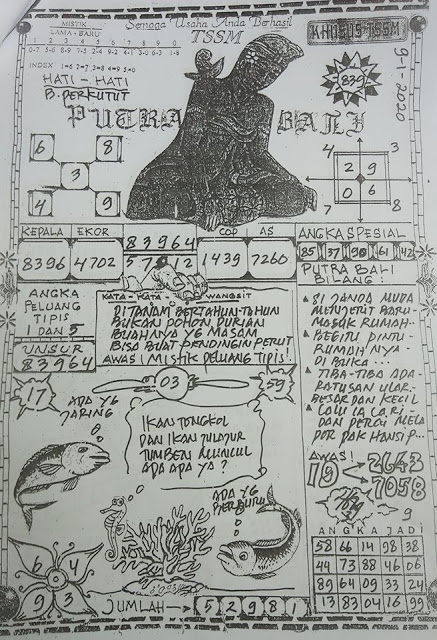 Semoga Usaha Anda Berhasil
MISTIK
LAMA - BARU
TSSM
KHUSUS TSSM
1 2 3 4 5 6 7 8 9 0
0-7 5-6 8-9 7-5 2-4 9-2 4-1 3-0 6-3 1-8
INDEX 1=6 2=7 3=8 4=9 5=0
HATI - HATI
B. PERKUTUT
839
9-1-2020
PUTRA BALI
6 8
3
4 9
4 3
2 9
0 6
7 8
KEPALA EKOR 83964 COP AS ANGKA SPESIAL
8396 4702 57012 1439 7260
85 37 90 61 42
PUTRA BALI
BILANG :
ANGKA
PELUANG
TIPIS
1 DAN 5
UNSUR
83964
KATA - KATA WANGSIT
DI TANAM BERTAHUN-TAHUN
BUKAN POHON DURIAN
BUAHANA YG MASAM
BISA BUAT PENDINGIN PERUT
AWAS! MISTIK PELUANG TIPIS
SI JANDA MUDA
MENJERIT BARU
MASUK RUMAH..
BEGITU PINTU
RUMAH NYA
DI BUKA...
TIBA-TIBA ADA
RATUSAN ULAR
BESAR DAN KECIL
LALU IA LARI
DAN PERGI MELA
POR PAK HANSIP...
17
03
59
ADA YG
JARING
IKAN TONGKOL
DAN IKAN
TUMBEN MUNCUL
ADA APA YA ?
ADA YG
BERBURU
AWAS!
19
2643
7058
9
ANGKA JADI
58 66 14 98 38
44 73 88 46 06
89 64 09 33 24
13 83 04 16 99
6 4
9 3
JUMLAH 5 2 9 8 1